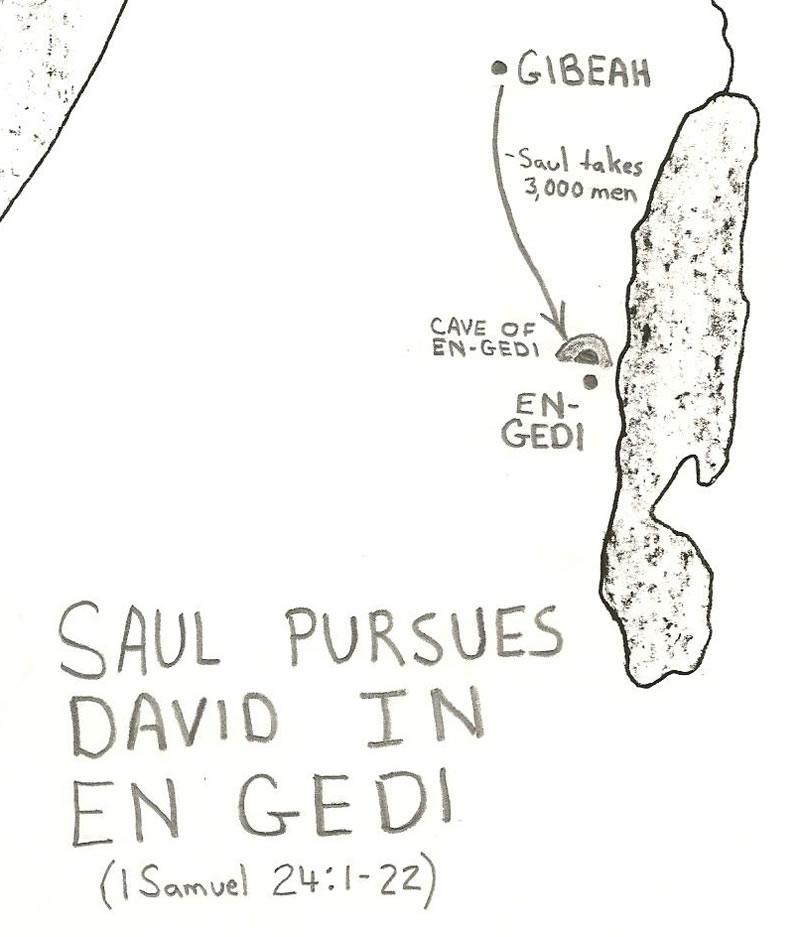 GIBEAH
-Saul takes
3,000 men
CAVE OF
EN-GEDI
EN-
GEDI
SAUL PURSUES
DAVID IN
EN GEDI
(1 Samuel 24:1-22)